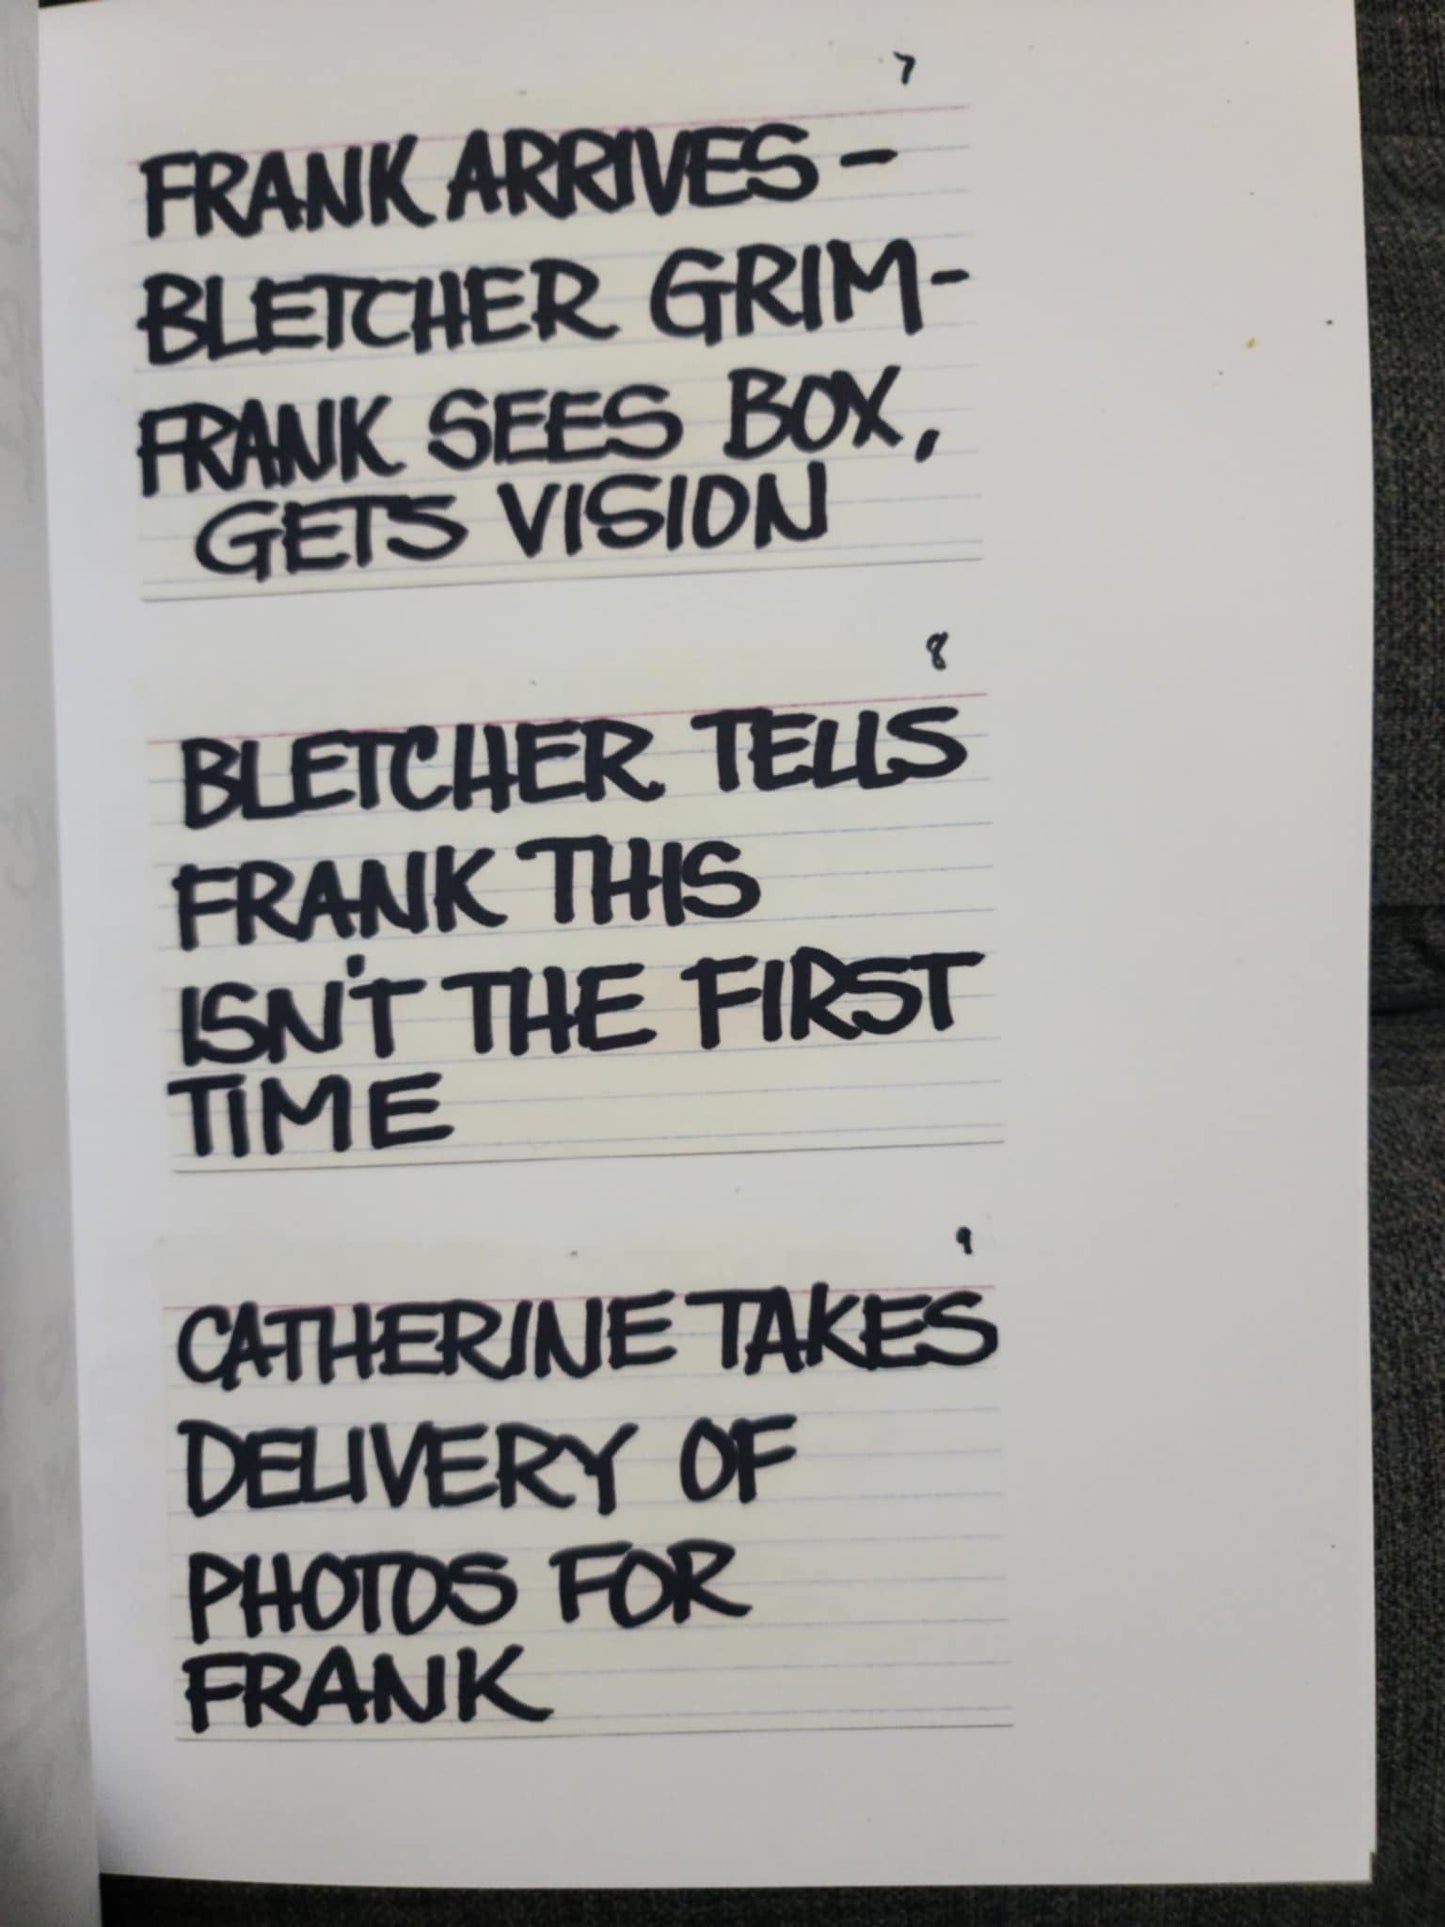 7
FRANK ARRIVES -
BLETCHER GRIM -
FRANK SEES BOX,
GETS VISION
8
BLETCHER TELLS
FRANK THIS
ISN'T THE FIRST
TIME
9
CATHERINE TAKES
DELIVERY OF
PHOTOS FOR
FRANK